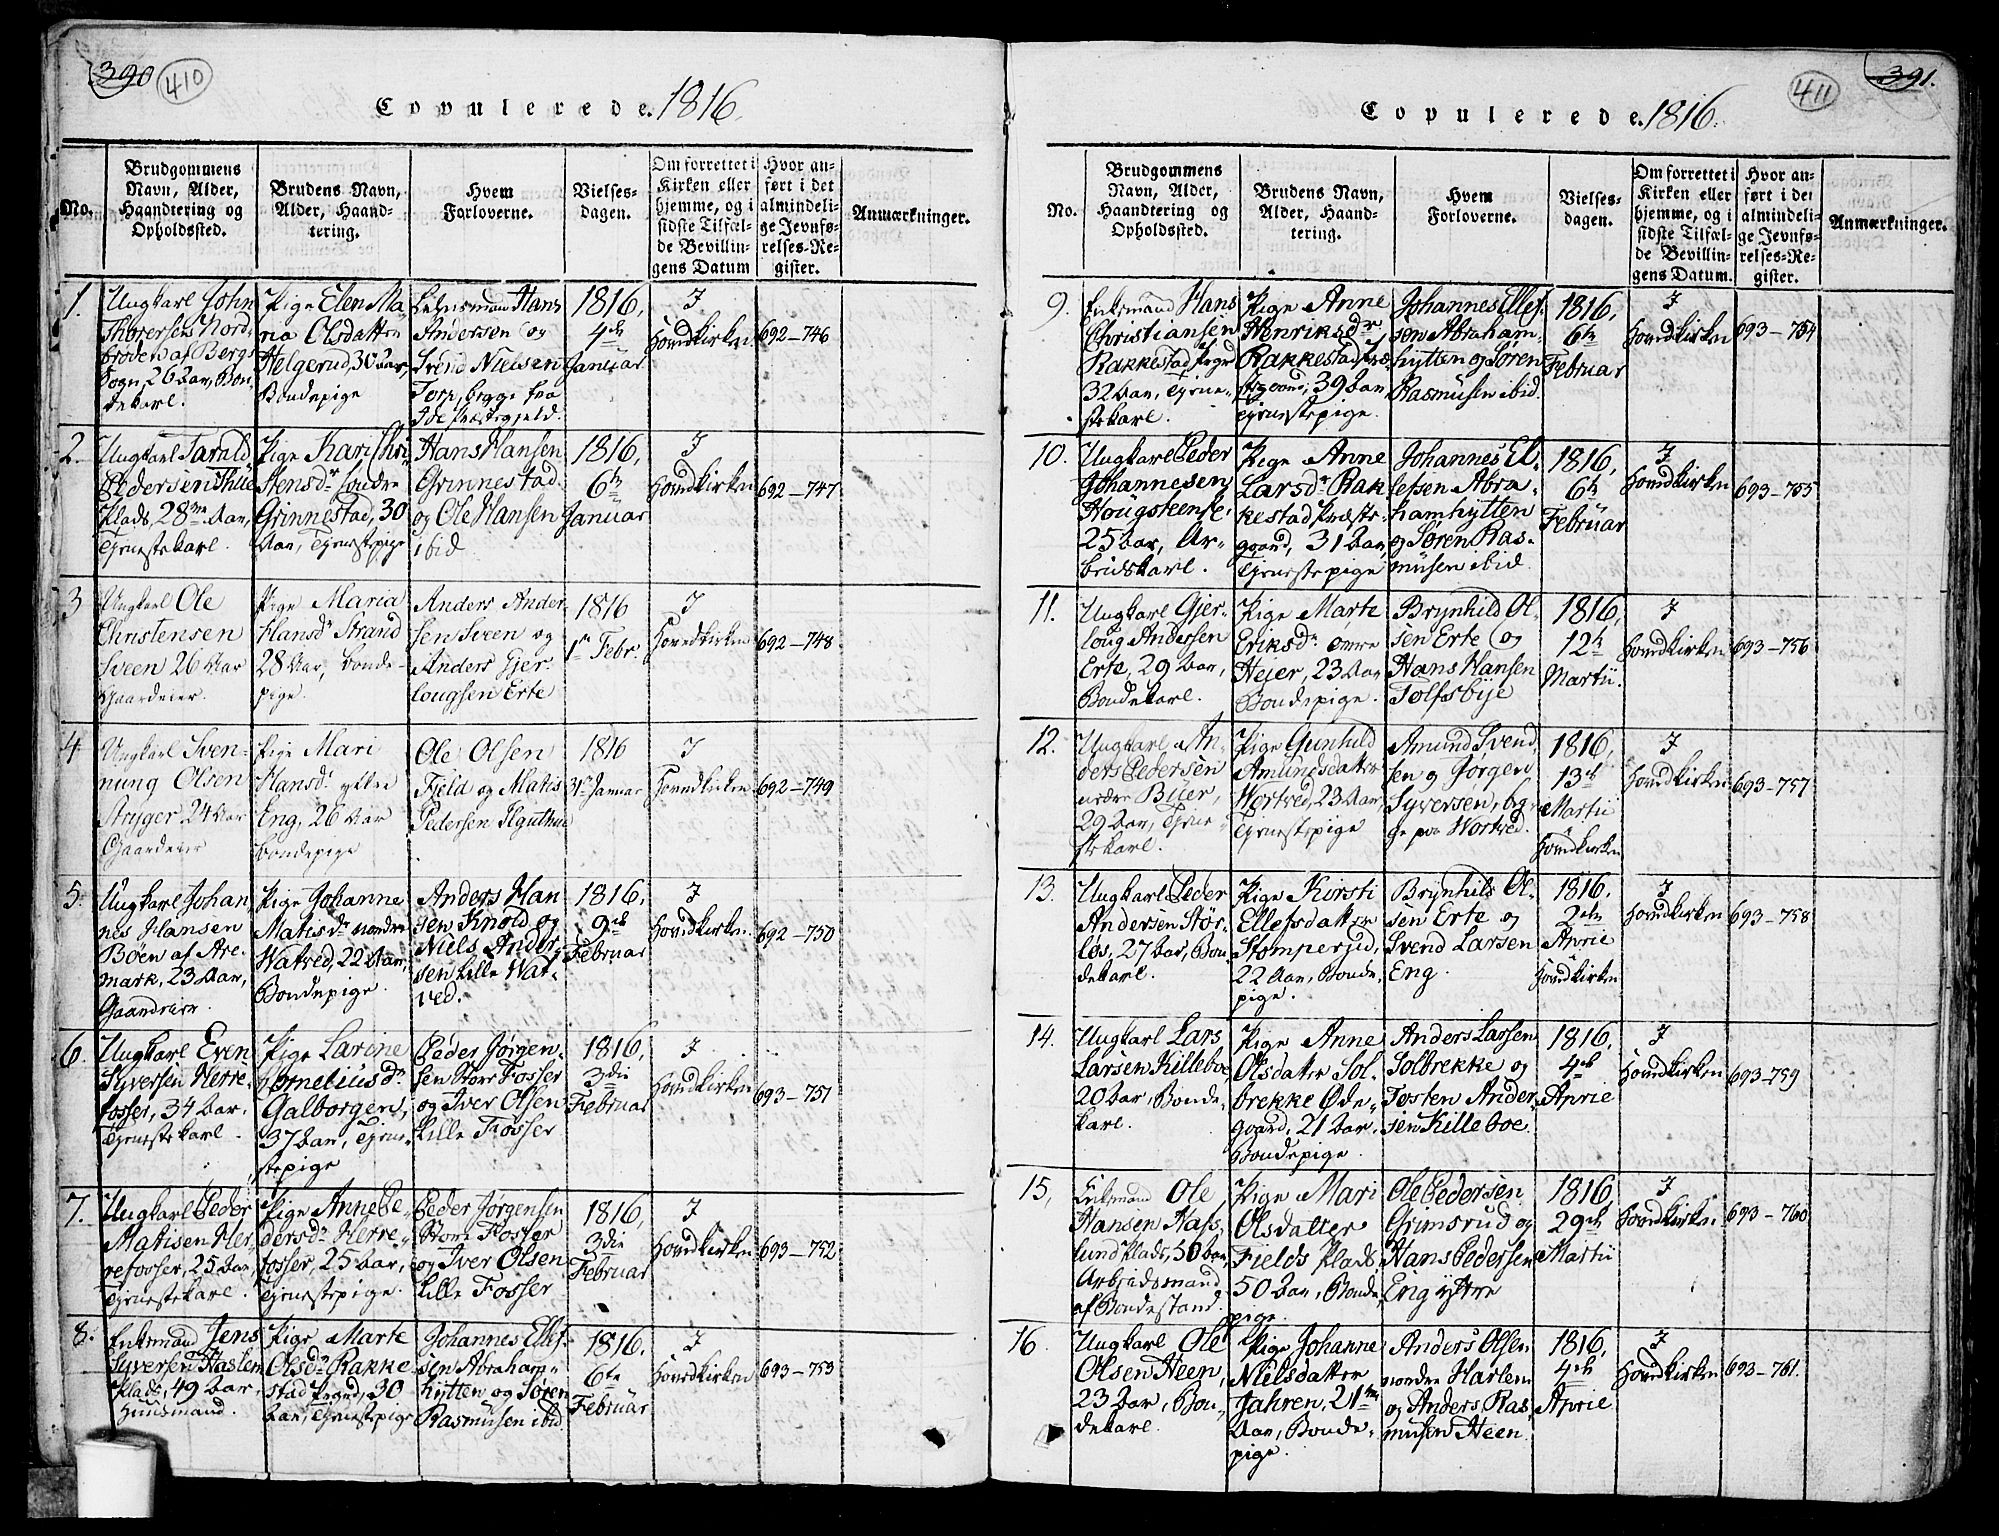 390 410
Copulerede. 1816.
No.
Brudgommens
Navn, Alder,
Haandtering og
Opholdssted.
Brudens Navn,
Alder, Haand-
tering.
Hvem
Forloverne.
Vielses-
dagen.
Om forrettet i
Kirken eller
hjemme, og i
sidste Tilfæl-
de Bevillin-
gens Datum
Hvor an-
ført i det
almindeli-
ge Jevnfø-
relses-Re-
gister.
Anmærkninger.
1.
Ungkarl John
Thorersen Nord-
broden af Bergs
Sogn 26 Aar, Bon-
dekarl.
Pige Elen Ma
ria Olsdatter
Helgerud, 30 Aar,
Bondepige
Lehnsmand Hans
Andersen og
Svend Nielsen
Torp, begge fra
Ide Præstegjeld.
1816,
4de
Januar
I
Hovedkirken
692-746
2.
Ungkarl Tarald
Pedersen Thüe
Plads, 28 Aar,
Tjenestekarl.
Pige Kari Chri
stensdr. søndre
Grinnestad, 30
Aar, Tjenestepige
Hans Hansen
Grinnestad
og Ole Hansen
ibid
1816,
6te
Januar
I
Hovedkirken
692-747
3
Ungkarl Ole
Christensen
Sveen 26 Aar
Gaardeier.
Pige Maria
Hansdr. Strand
28 Aar, bonde-
pige.
Anders Ander-
sen Sveen og
Anders Gjer-
lougsen Erte
1816
1te Febr.
I
Hovedkirken
692-748
4
Ungkarl Sven-
nung Olsen
Stryger 24 Aar
Gaardeier
Pige Mari
Hansdr. ydtre
Eng, 26 Aar
bondepige
Ole Olsen
Fjeld og Matis
Pedersen
1816
31te Januar
I
Hovedkirken
692-749
5.
Ungkarl Johan,
nes Hansen
Böen af Are-
mark, 23 Aar,
Gaardeier.
Pige Johanne
Matisdr. nordre
Watved, 22 Aar,
Bondepige.
Anders Han
sen Knold og
Niels Ander-
sen Lille Wat-
ved.
1816,
9de
Februar
I
Hovedkirken
692-750
6.
Ungkarl Even
Syversen Herre-
fosser, 34 Aar.
Tjenestekarl.
Pige Larine
Corneliusdr.
Galborgen,
37 Aar, Tjene-
stepige
Peder Jørgen-
sen Store Fosser
og Iver Olsen
Lille Fosser
1816,
3die
Februar
I
Hovedkirken
693-751
7.
Ungkarl Peder
Matisen Her-
refosser, 25 Aar,
Tjenestekarl.
Pige Anne Pe-
dersdr. Herre-
fosser, 25 Aar,
Tjenestepige.
Peder Jørgensen
Store Fosser
og Iver Olsen
Lille Fosser
1816,
3die
Februar
I
Hovedkirken
693-752
8.
Enkemand Jens
Syversen Haslem
Plads, 49 Aar,
Huusmand.
Pige Marte
Olsdr. Rakke
stad Prgrd, 30
Aar, Tjenestepige
Johannes Ellef-
sen Abraham-
hytten og Søren
Rasmusen ibid.
1816,
6te
Februar
I
Hovedkirken
693-753
411 391.
Copulerede. 1816.
No.
Brudgommens
Navn, Alder,
Haandtering og
Opholdssted.
Brudens Navn,
Alder, Haand-
tering.
Hvem
Forloverne.
Vielses-
dagen.
Om forrettet i
Kirken eller
hjemme, og i
sidste Tilfæl-
de Bevillin-
gens Datum.
Hvor an-
ført i det
almindeli-
ge Jevnfø-
relses-Re-
gister.
Anmærkninger.
9.
Enkemand Hans
Christiansen
Rakkestad Prgrd
32 Aar, Tjene-
stekarl.
Pige Anne
Henriksdr.
Rakkestad Præ-
stegaard, 39 Aar
Tjenestepige.
Johannes Ellef-
sen Abraham-
hytten og Søren
Rasmusen ibid.
1816,
6te
Februar
I
Hovedkirken
693-754
10.
Ungkarl Peder
Johannesen
Hougsteense.
25 Aar, Ar-
beidskarl.
Pige Anne
Larsdr. Rak
kestad Præste-
gaard, 31 Aar,
Tjenestepige
Johannes El-
lefsen Abra-
hamhytten
og Søren Ras-
musen ibid.
1816,
6te
Februar
I
Hovedkirken
693-755
11.
Ungkarl Gjer-
loug Andersen
Erte, 29 Aar,
Bondekarl.
Pige Marte
Eriksdr. østre
Heier, 23 Aar
Bondepige.
Brynhild Ol-
sen Erte og
Hans Hansen
Tolfsbye
1816,
12te
Martii.
I
Hovedkirken
693-756
12.
Ungkarl An-
ders Pedersen
nedre Buer,
29 Aar, Tjene-
stekarl.
Pige Gunhild
Amundsdatter
Wortved, 23 Aar,
Tjenestepige
Amund Svend
sen og Jørgen
Syversen, beg-
ge paa Wortved.
1816,
13de
Martii
Hovedkirken
I
Hovedkirken
693-757
13.
Ungkarl Peder
Andersen Stör-
løs, 27 Aar, Bon-
dekarl.
Pige Kirsti
Ellefsdatter
Stomperud,
22 Aar, Bonde-
pige.
Brynhild Ol-
sen Erte og
Svend Larsen
Eng.
1816,
2den
April
Hovedkirken
I
Hovedkirken
693-758
14.
Ungkarl Lars
Larsen Killeboe
20 Aar, Bonde-
karl.
Pige Anne
Olsdatter Sol-
brekke Øde-
gaard, 21 Aar.
Bondepige.
Anders Larsen
Solbrekke og
Tosten Ander-
sen Killeboe.
1816,
4de
April
I
Hovedkirken
693-759
15,
Enkemand Ole
Hansen Hafs-
lund Plads, 50 Aar,
Arbeidsmand
af Bondestand.
Pige Mari
Olsdatter
Fields Plads,
50 Aar, Bonde-
pige.
Ole Pedersen
Grimsrud og
Hans Pedersen
Eng ydtre
1816,
29de
Martii
I
Hovedkirken
693-760
16.
Ungkarl Ole
Olsen Heen,
23 Aar, Bon-
dekarl.
Pige Johanne
Nielsdatter
Jahren, 21
Aar, Bonde-
pige.
Anders Olsen
nordre Harlem
og Anders Ras-
musen Heen.
1816,
4de
April
I
Hovedkirken
693-761.